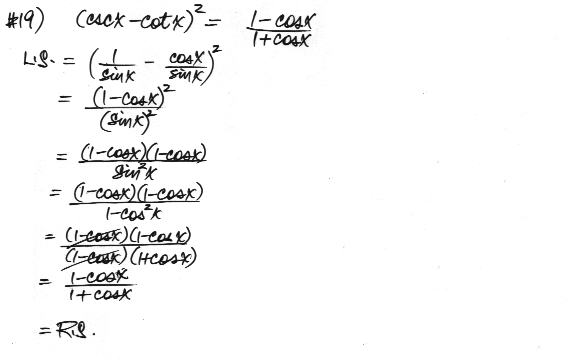 #19) (cscx - cotx)² = (1 - cosx)/(1 + cosx)
L.S. = (1/sinx - cosx/sinx)²
= (1 - cosx)²/(sinx)²
= (1 - cosx)(1 - cosx)/sin²x
= (1 - cosx)(1 - cosx)/1 - cos²x
= (1 - cosx)(1 - cosx)/(1 - cosx)(1 + cosx)
= 1 - cosx/1 + cosx
= R.S.